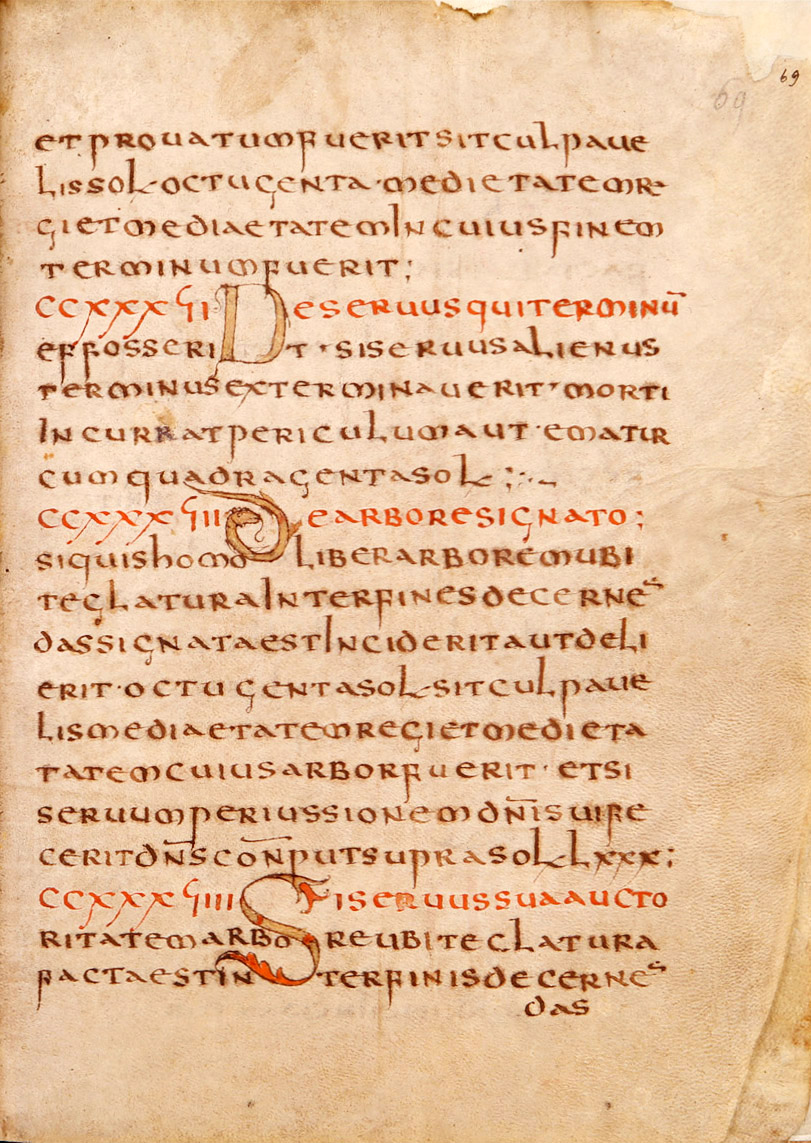 69
69
et prouatum fuerit sit culpaue
lis sol· octugenta· medietatem re
gi et mediaetatem in cuius finem
terminum fuerit;
CCXXXVII De seruus qui terminū
effosserit· si seruus alienus
terminus exterminauerit· morti
incurrat periculum aut ematur
cum quadragenta sol;
CCXXXVIII De arbore signato;
si quis homo liber arborem ubi
teclatura inter fines decernen
das signata est inciderit aut deli
erit· octugenta sol· sit culpaue
lis mediaetatem regi et medieta
tatem cuius arbor fuerit· et si
seruum periussionem dn̄i sui fe
cerit dn̄s con̄p ut supra sol· lxxx;
CCXXXVIIII Si seruus sua aucto
ritatem arbore ubi teclatura
facta est inter finis decernen
das